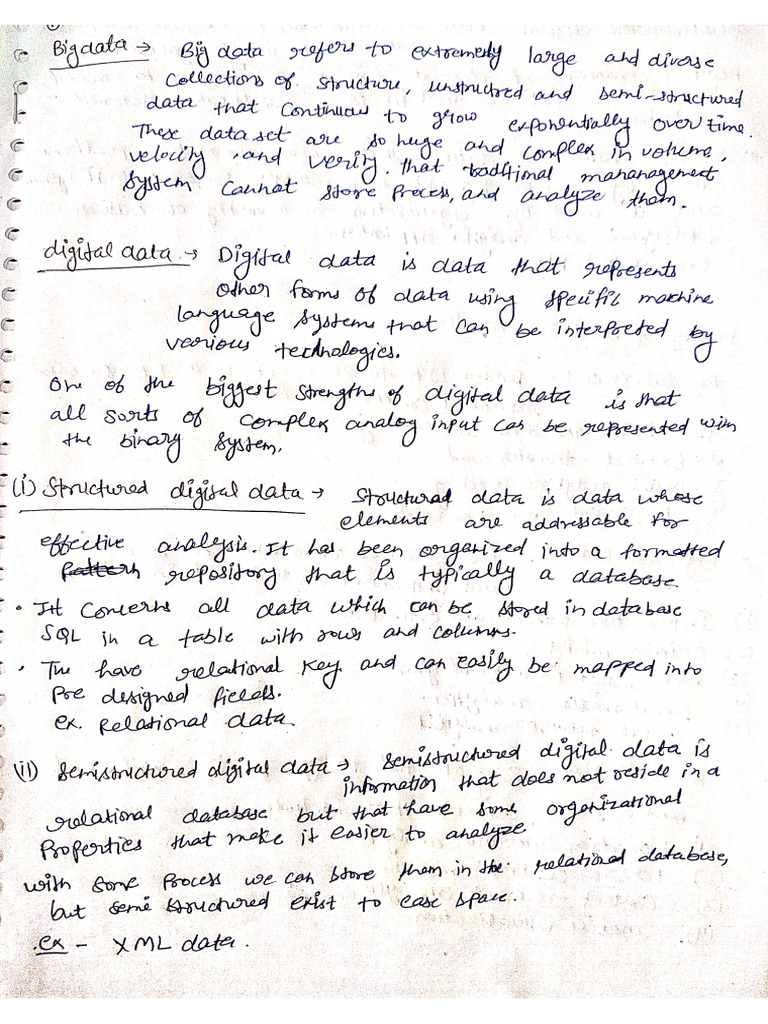 Bigdata → Big data refers to extremely large and diverse
collections of structure, unstructred and semi-structured
data that continuous to grow exponentially over time.
These data set are so huge and complex in volume,
velocity, and verity. that traditional mananagement
system cannot store process, and analyze them.
digital data → Digital data is data that represents
other forms of data using specific machine
language systems that can be interpreted by
various technologies.
One of the biggest strengths of digital data is that
all sorts of complex analog input can be represented with
the binary system.
(i) Structured digital data → Structured data is data whose
elements are addressable for
effective analysis. It has been organized into a formatted
pattern repository that is typically a database
• It concerns all data which can be stored in database
SQL in a table with rows and columns.
• The have relational key and can easily be mapped into
Pre designed fields.
ex. Relational data.
(ii) Semistructured digital data → Semistructured digital data is
information that does not reside in a
relational database but that have some organizational
Properties that make it easier to analyze
with some process we can store them in the relational database,
but semi structured exist to ease space.
.ex - XML data.